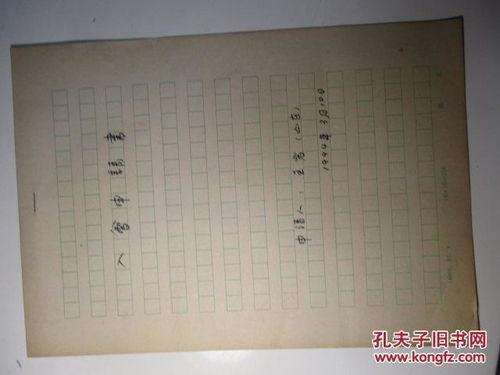 入會申請書
申请人：王岩（山东）
1994年3月10日
孔夫子旧书网
www.kongfz.com